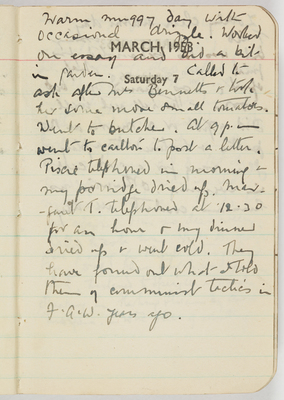 Warm muggy day with
occasional drizzle. Worked
MARCH, 1953
on essay and did a bit
in garden. Called to
Saturday 7
ask after Mrs Bennetts & took
her some more small tomatoes.
Went to butcher. At 9 p.m
went to Carlton to post a letter.
telephoned in morning &
my porridge dried up. Mar-
-garet T. telephoned at 12.30
for an hour & my dinner
dried up & went cold. They
have found out what I told
them of communist tactics in
F.A.W. years ago.